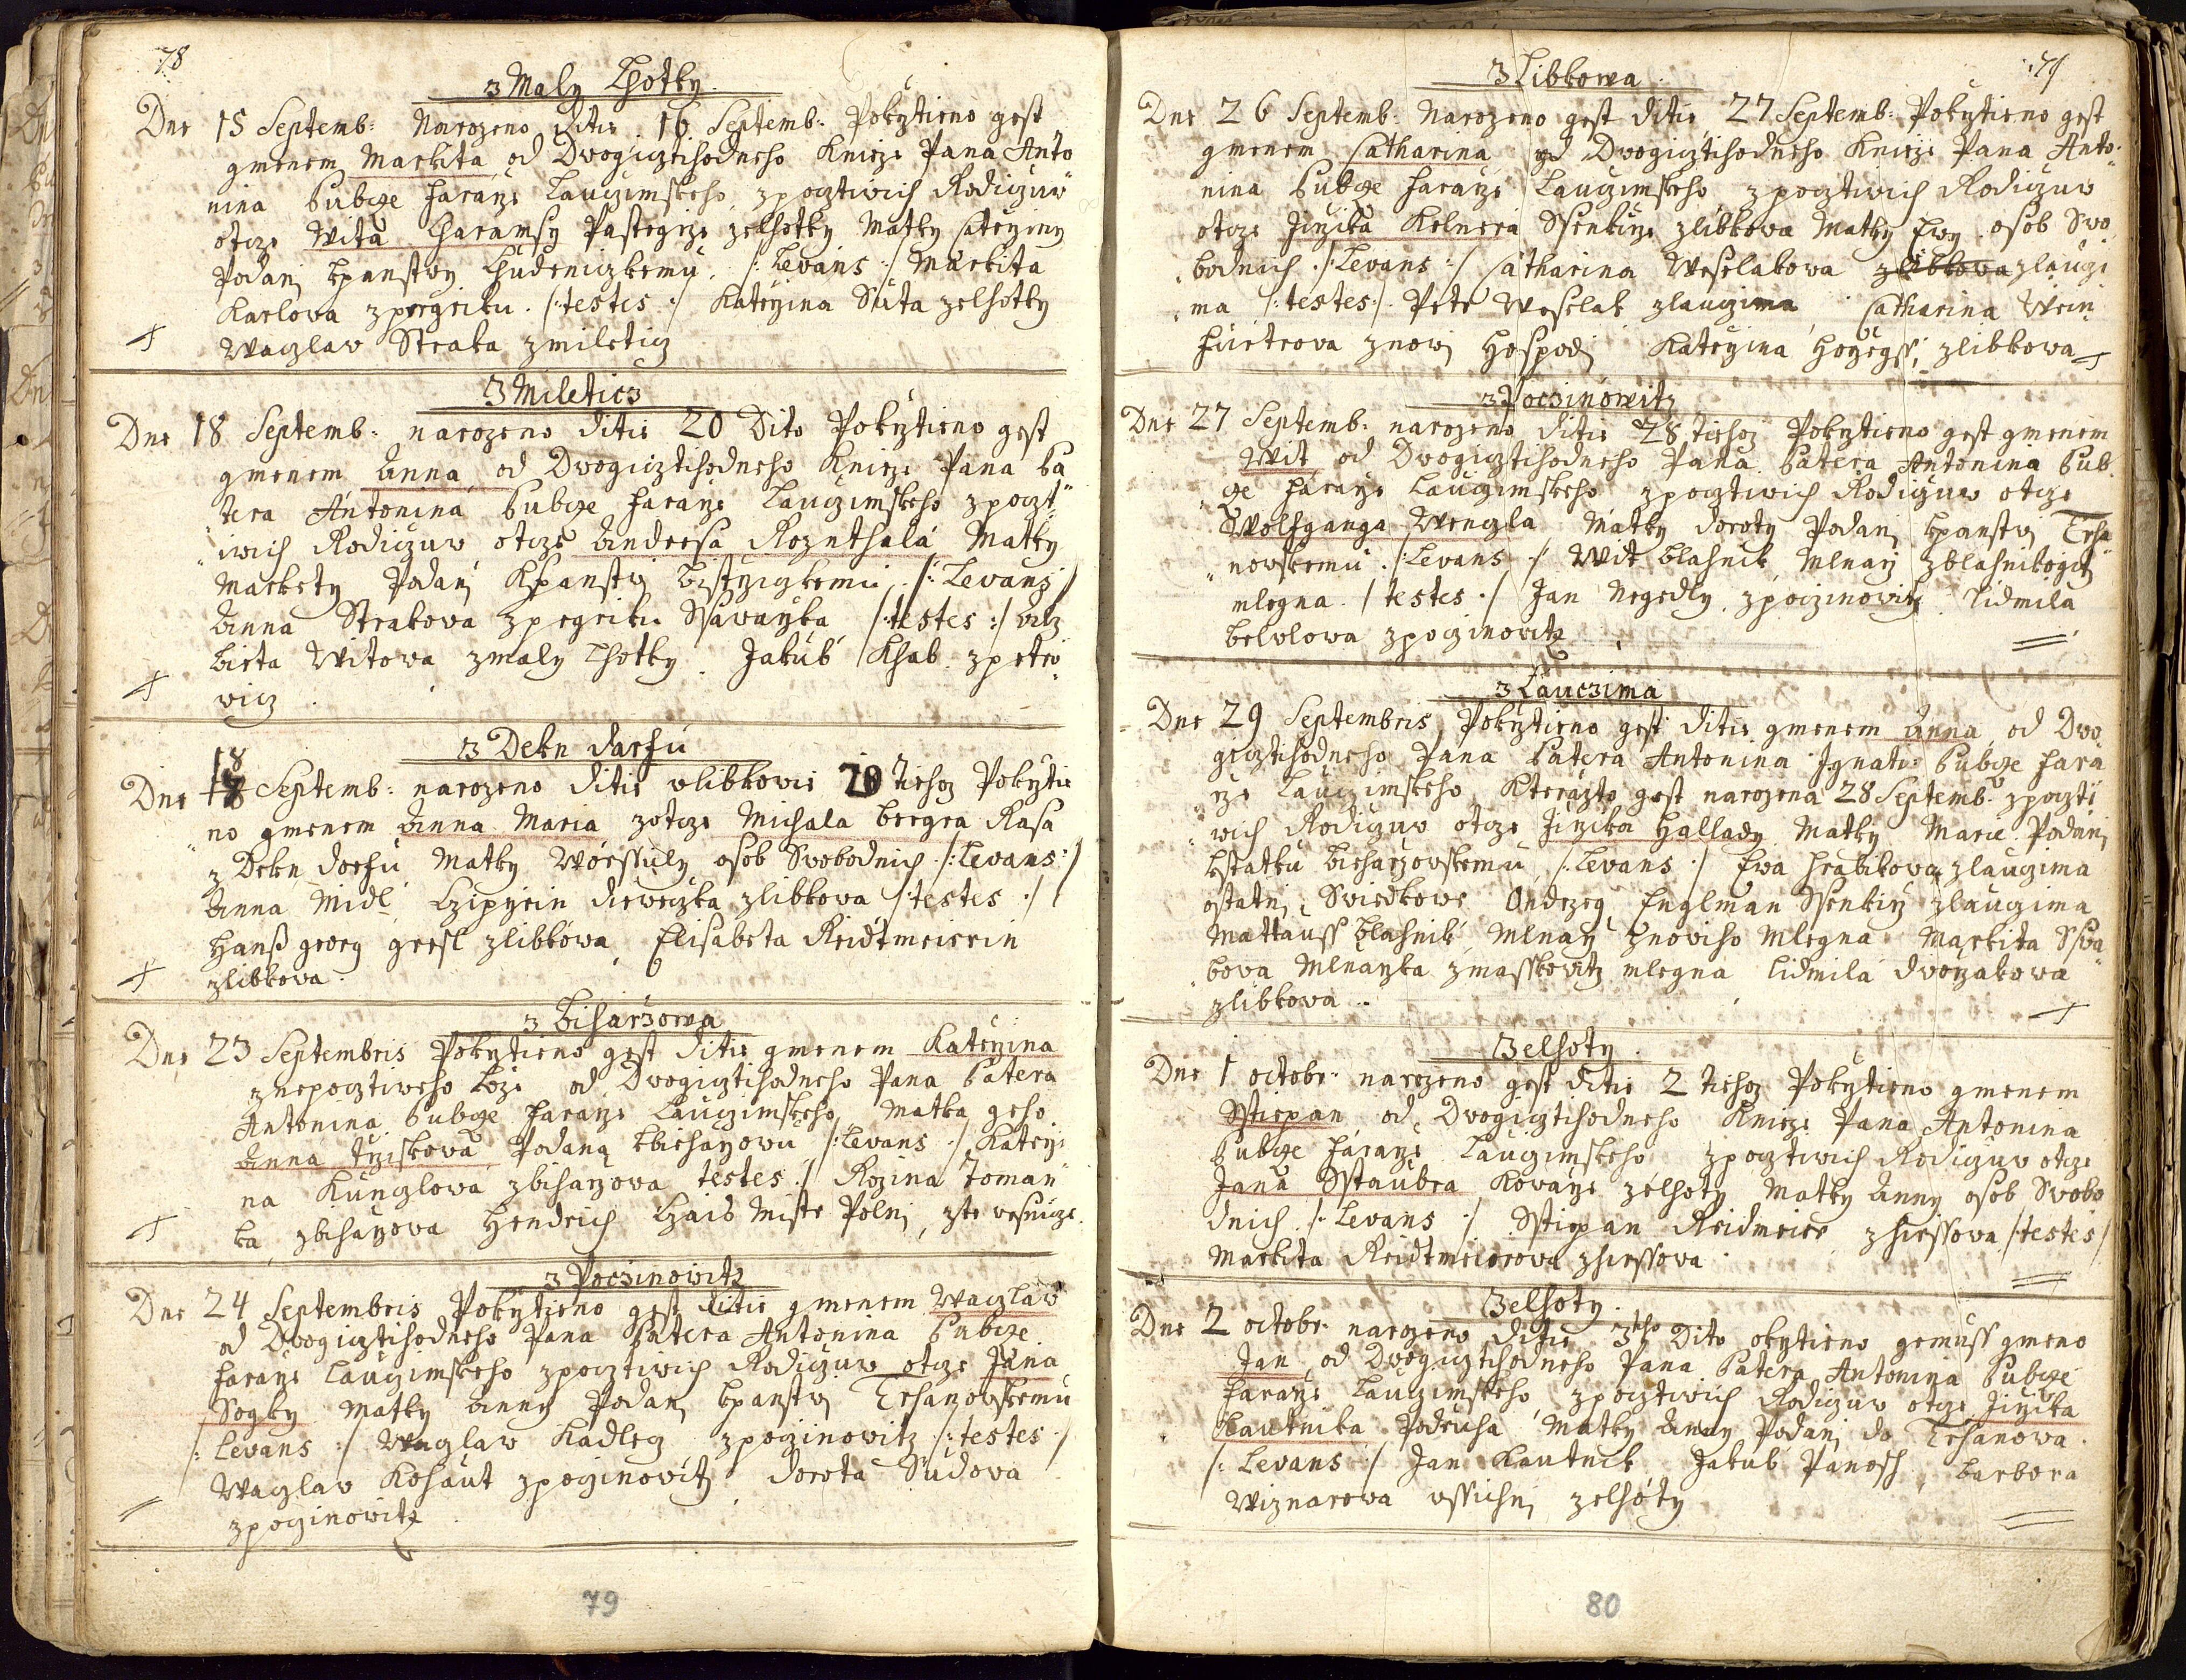 78
z Maly Lhotky.
Dne 15 Septemb: Narozeno ditie 16 Septemb: Pokrztieno gest
gmenem Markita od Dwogicztihodneho Knieze Pana Anto
nina Bubge faraře Lauczimskeho, z pocztiwich Rodiczuw
otcze Wita Charamsy Pastegrze zelhotky Matky Catrzyny
Podani kpanstwy Chudeniczkemu. /: Levans :/ Markita
Karlowa zpregreku. /: testes :/ Katerzina Suta zelhotky
Waczlaw Straka zmileticz
Z Mileticz
Dne 18 Septemb: narozeno ditie 20 Dito Pokrztieno gest
gmenem Anna, od Dwogicztihodneho Knieze Pana Pa
tera Antonina Bubge faraře Lauczimskeho z poczt
iwich Rodiczuw otcze Andresa Roznthala Matky
Markety Podani Kpanstwj bistrziczkemu. /: Levans /
Anna Strakowa zpregreku Ssavarzka /: testes :/ Alz
bieta Witowa zmaly Lhotky. Jakub Khab zpetro
wicz.
z Dekn darfu
18
Dne 17 Septemb: narozeno ditie vlibkowie 20 Tiehoz Pokrztie
no gmenem Anna Maria zotcze Michala bergra Rasa
z Dekn dorfu Matky Worssuly osob Swobodnich /: Levans :/
Anna Midl Czipyrin dieweczka zlibkowa /: testes :/
Hanß georg gresl zlibkowa, Elisabeta Reidtmeierin
zlibkowa.
z Biharzowa
Dne 23 Septembris Pokrztieno gest ditie gmenem Katerzina
znepocztiweho loze od Dwogicztihodneho Pana Patera
Antonina Bubge faraře Lauczimskeho, Matka geho
Anna Trziskowa Podana kbieharzowu /: Levans :/ Katerzi
na Kunzlowa zbiharzowa testes :/ Rozina Toman
ka zbiharzowa Hendrich Czais Mistr Polni, zte wesnicze.
z Poczinowitz
Dne 24 Septembris Pokrztieno gest ditie gmenem Waczlaw
od Dwogicztihodneho Pana Patera Antonina Bubge
faraře Lauczimskeho zpocztiwich Rodiczuw otcze Jana
Sogky Matky Anny Podani kpanstwj Trhanowskemu
/: Levans :/ Waczlaw Kadlecz zpoczinowitz /: testes :/
Waczlaw Kohaut zpoczinowitz dorota Sudowa
zpoczinowitz.
79
79
Z Libkowa
Dne 26 Septemb: Narozeno gest ditie 27 Septemb: Pokrztieno gest
gmenem Catharina od Dwogicztihodneho Knieze Pana Anto
nina Bubge faraře Lauczimskeho zpocztiwich Rodiczuw
otcze Jirzika Kelnera Ssenkirze zlibkowa Matky Ewy osob Swo
bodnich. /: Levans :/ Catharina Weselakowa zlibkowa zlauczi
ma /: testes :/ Petr Weselak zlauczima Catharina Wein
furtrowa znowj Hospodj Katerzina horzegssi zlibkowa
z Poczinowitz
Dne 27 Septemb: narozeno ditie 28 Tiehoz Pokrztieno gest gmenem
Wit od Dwogicztihodneho Pana Patera Antonina Bub
ge faraře Lauczimskeho zpocztiwich Rodiczuw otcze
Wolfganga Wenzla Matky doroty Podani kpanstwj Trha
nowskemu. /: Levans :/ Wit blahnik Mlnarz zblahnikogicz
mlegna. / testes :/ Jan Negedly zpoczinowitz Lidmila
belvlowa zpoczinowitz
z Lauczima
Dne 29 Septembris Pokrztieno gest ditie gmenem Anna od Dwo
gicztihodneho Pana Patera Antonina Ignatz Bubge fara
rze Lauczimskeho, Kterazto gest narozena 28 Septemb: zpoczti
wich Rodiczuw otcze Jirzika Hallady Matky Marie Podani
kstatku bieharzowskemu /: Levans :/ Ewa hrabikowa zlauczima
ostatni Swiedkowe Ondrzeg Englman Ssenkirz zlauczima
Mattauss blahnik Mlnarz znoweho Mlegna Markita Sswa
bowa Mlnarzka zmasskowitz mlegna Lidmila dworzakowa
zlibkowa.
Zelhoty.
Dne 1 octobr: narozeno gest ditie 2 Tiehoz Pokrztieno gmenem
Sstiepan od Dwogicztihodneho Knieze Pana Antonina
Bubge faraře Lauczimskeho zpocztiwich Rodiczuw otcze
Jana Sstaubra Kowarze zelhoty Matky Anny osob Swobo
dnich. /: Levans :/ Sstiepan Reidmeier zhirssowa /: testes /
Markita Reidtmeierowa zhirssowa.
Zelhoty.
Dne 2 octobr: narozeno ditie 3tiho Dito okrztieno gemuss gmeno
Jan od Dwogicztihodneho Pana Patera Antonina Bubge
faraře Lauczimskeho, zpocztiwich Rodiczuw otcze Jirzika
Kautnika Podruha Matky Anny Podani do Trhanowa.
/: Levans :/ Jan Kautnik Jakub Panosch, barbora
Wiznarowa wssichni zelhoty
80